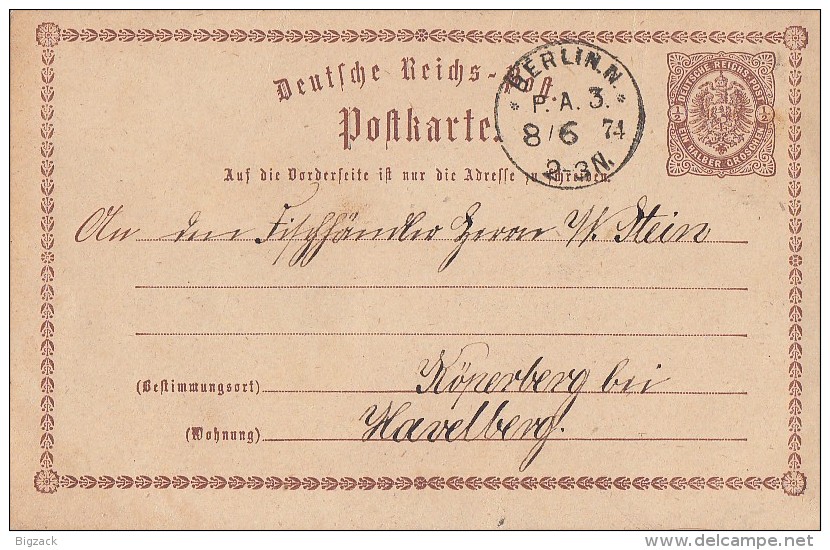 Deutsche Reichs-Post.
Postkarte.
Auf die Vorderseite ist nur die Adresse zu schreiben.
BERLIN.N.
* P.A.3. *
8/6 74
2-3N.
DEUTSCHE REICHS-POST
½ ½
EIN HALBER GROSCHEN
An den Fischhändler Herrn W. Stein
(Bestimmungsort) Köperberg bei
(Wohnung) Havelberg.
Bigzack
delcampe.net